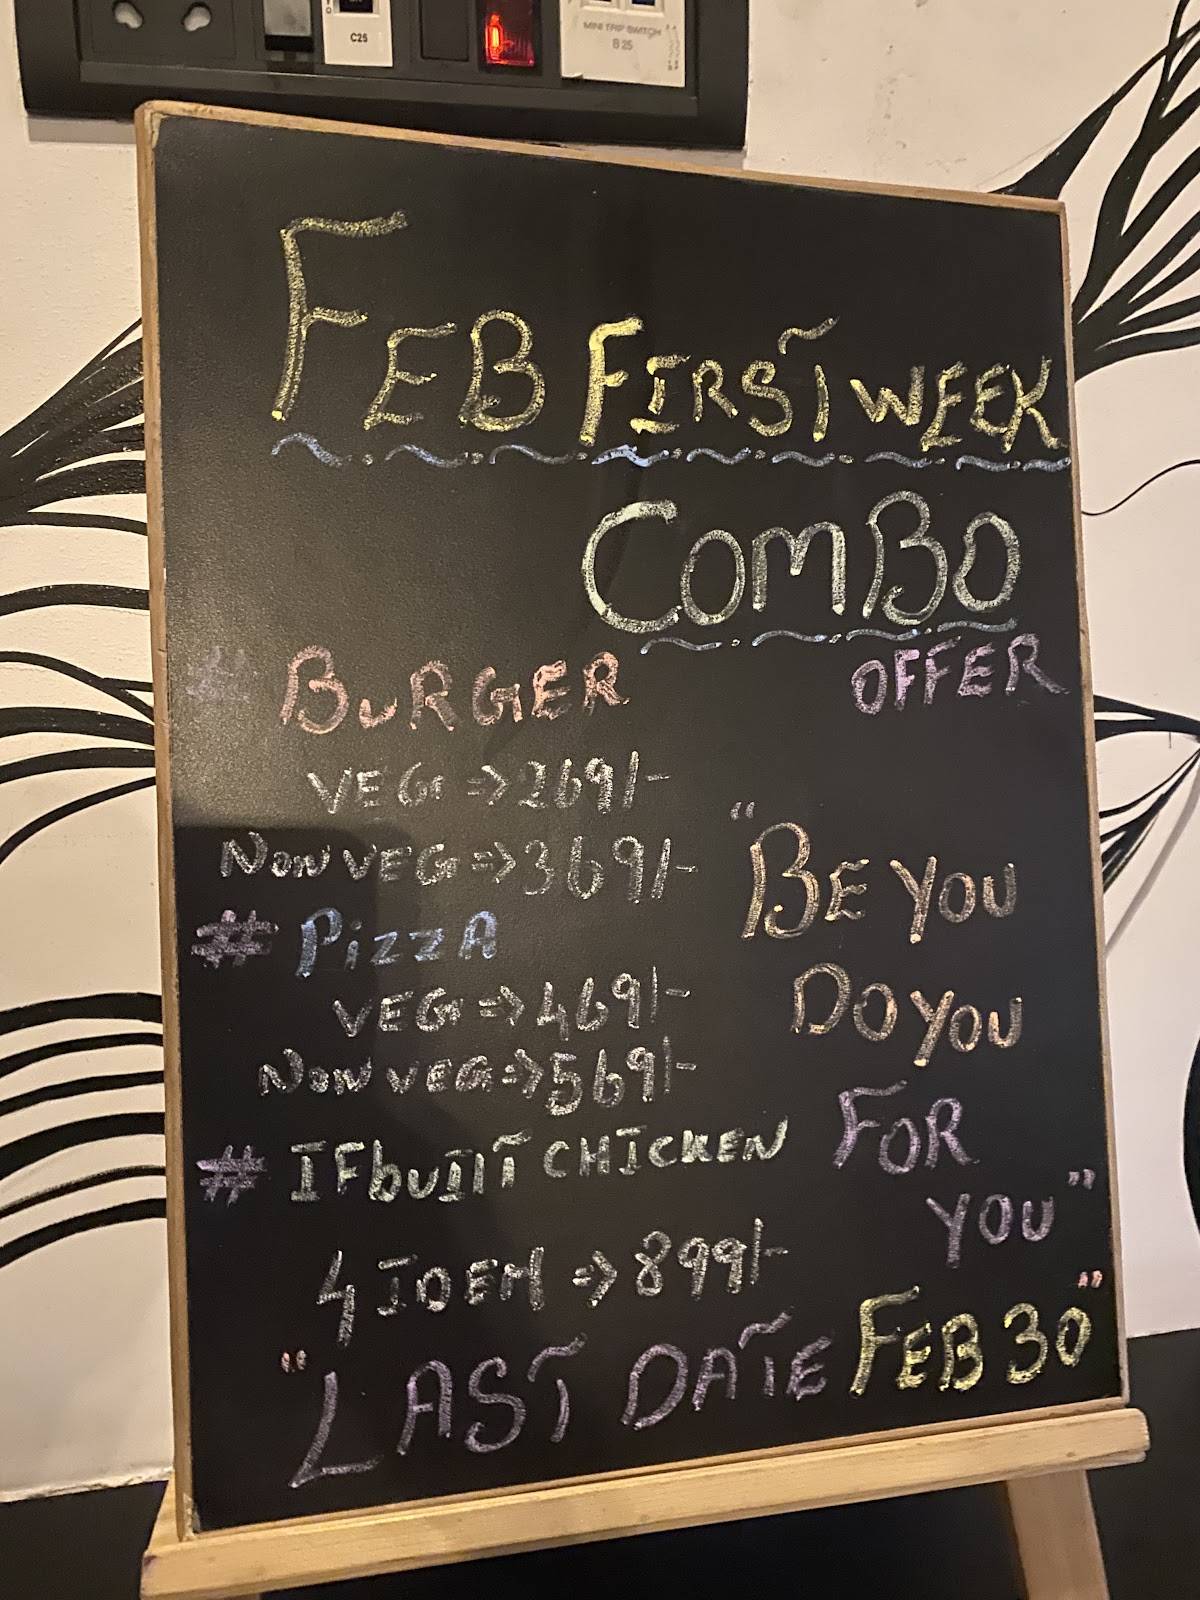 C25
MINI TRIP SWITCH
B 25
FEB FIRST WEEK
COMBO
OFFER
# BURGER
VEG => 269/-
NON VEG => 369/-
# PizzA
VEG => 469/-
NON VEG => 569/-
# IFbuilt CHICKEN
4 IDEM => 899/-
"BE YOU
DO YOU
FOR
YOU"
"LAST DATE FEB 30"